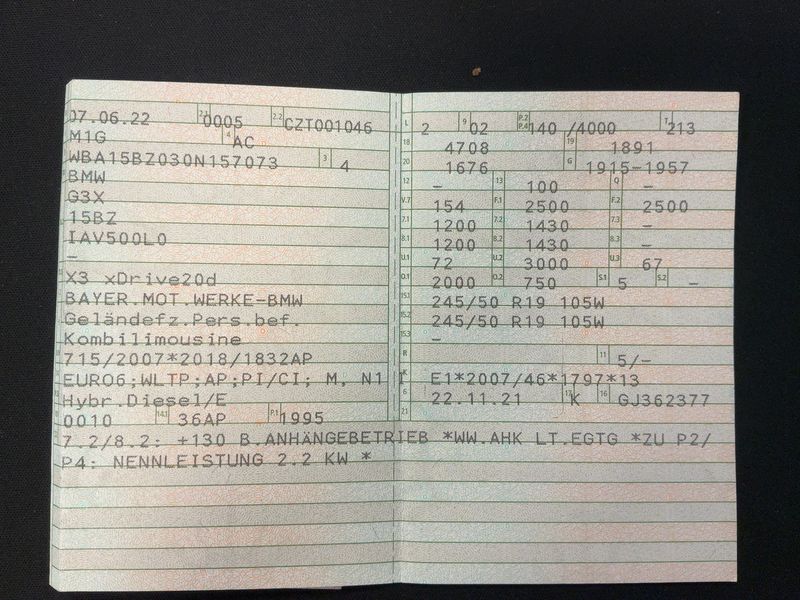 07.06.22 2.1 0005 2.2 CZT001046
M1G 4 AC
WBA15BZ030N157073 3 4
BMW
G3X
15BZ
IAV500L0
–
X3 xDrive20d
BAYER.MOT.WERKE-BMW
Geländefz.Pers.bef.
Kombilimousine
715/2007*2018/1832AP
EURO6;WLTP;AP;PI/CI; M, N1 I
Hybr.Diesel/E
0010 14.1 36AP P.1 1995
L 2 9 02 P.2 P.4 140 /4000 T 213
18 4708 19 1891
20 1676 G 1915-1957
12 – 13 100 Q –
V.7 154 F.1 2500 F.2 2500
7.1 1200 7.2 1430 7.3 –
8.1 1200 8.2 1430 8.3 –
U.1 72 U.2 3000 U.3 67
O.1 2000 O.2 750 S.1 5 S.2 –
15.1 245/50 R19 105W
15.2 245/50 R19 105W
15.3 –
R 11 5/–
K E1*2007/46*1797*13
6 22.11.21 17 K 16 GJ362377
21
7.2/8.2: +130 B.ANHÄNGEBETRIEB *WW.AHK LT.EGTG *ZU P2/
P4: NENNLEISTUNG 2.2 KW *